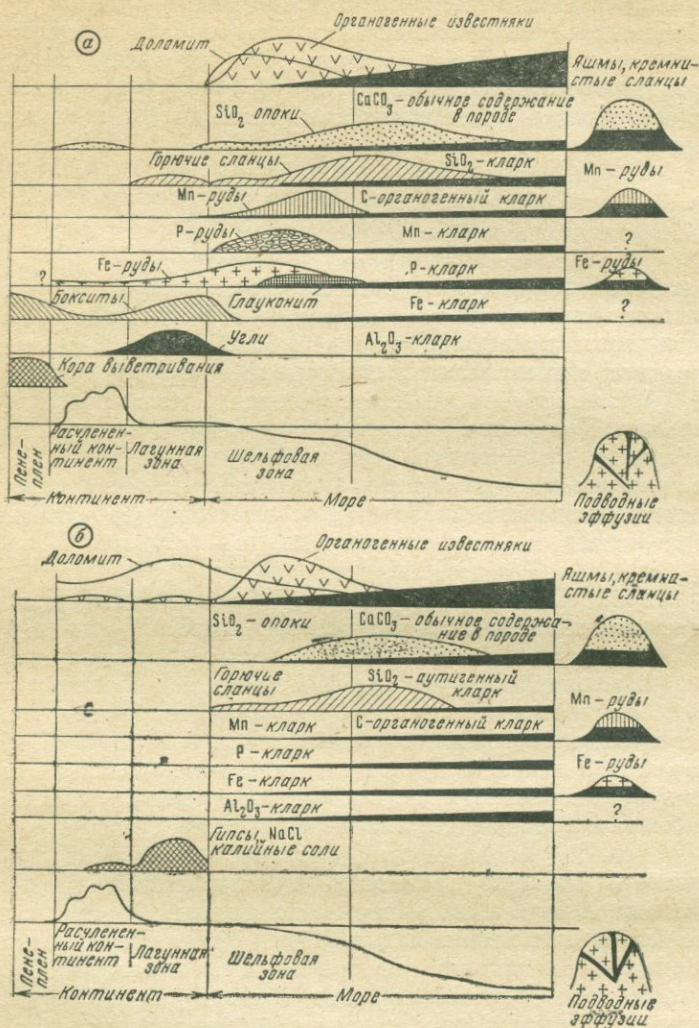 а
Органогенные известняки
Доломит
Яшмы, кремни-
стые сланцы
SiO2 опоки
CaCO3 – обычное содержание
в породе
Горючие сланцы
SiO2 – кларк
Mn-руды
Mn-руды
С-органогенный кларк
Р-руды
Mn – кларк
?
?
Fe-руды
Р-кларк
Fe-руды
Бокситы
Глауконит
Fe – кларк
?
Угли
Al2O3-кларк
Кора выветривания
Пене-
плен
Расчленен-
ный кон-
тинент
Лагунная
зона
Шельфовая
зона
Континент
Море
Подводные
эффузии
б
Доломит
Органогенные известняки
Яшмы, кремни-
стые сланцы
SiO2 – опоки
CaCO3 – обычное содержа-
ние в породе
Горючие
сланцы
SiO2 – аутигенный
кларк
Mn-руды
Mn – кларк
С-органогенный кларк
Р – кларк
Fe-руды
Fe – кларк
Al2O3-кларк
?
Гипсы, NaCl
калийные соли
Пене-
плен
Расчленен-
ный кон-
тинент
Лагунная
зона
Шельфовая
зона
Континент
Море
Подводные
эффузии